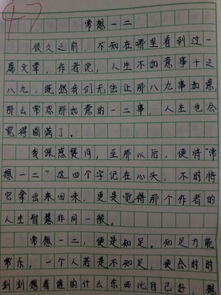 47
常想一二
很久之前，不知在哪里看到过一
篇文章，作者说，人生不如意事十之
八九，既然我们无法让那八九事如意，
那么常想那如意的一二事，人生也会
觉得圆满了。
我深感赞同，至那以后，便将“常
想一二”这四个字记在心头，不时将
它拿出来回味，更是觉得那个作者的
人生智慧非同一般。
常想一二，便是知足。知足方能
常乐，一个人若是不知足，便会时时
刻刻想着谁的什么东西比自己好，